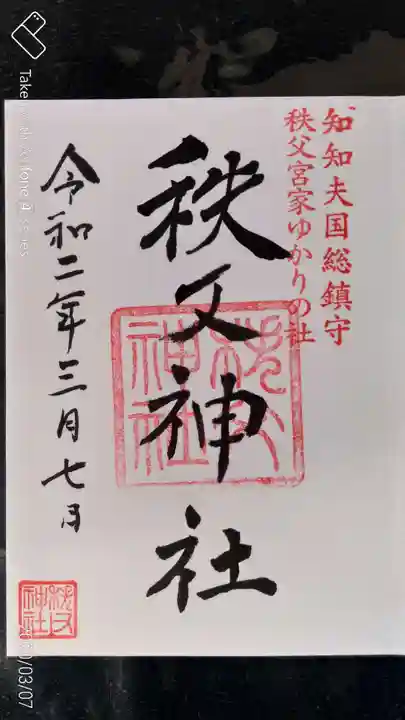 知知夫国総鎮守
秩父宮家ゆかりの社
秩父神社
秩父神社
令和二年三月七日
秩父神社
/03/07